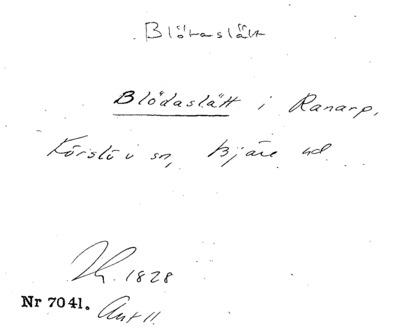 Blötaslätt
Blödaslätt i Ranarp,
Förslöv sn, Bjäre hd
1828
Nr 7041. Akt 11.